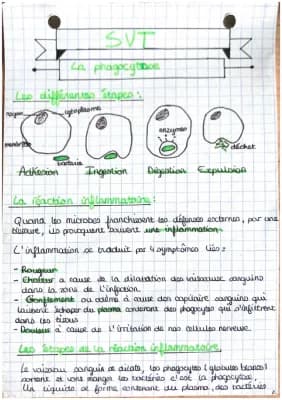 SVT
La phagocytose
Les différentes étapes :
noyau
cytoplasme
membrane
bactérie
enzymes
déchet
Adhésion Ingestion Digestion Expulsion
La réaction inflammatoire :
Quand les microbes franchissent les défenses externes, par une
blessure, ils provoquent souvent une inflammation.
L'inflammation se traduit par 4 symptômes liés :
- Rougeur
- Chaleur a cause de la dilatation des vaisseaux sanguins
dans la zone de l'infection
- Gonflement ou œdème à cause des capilaire sanguins qui
laissent échaper du plasma contenant des phagocytes qui s'infiltrent
dans les tissus
- Douleur à cause de l'irritation de nos cellules nerveuse.
Les étapes de la réaction inflammatoire.
Le vaisseau sanguin se dilate, les phagocytes (globules blancs)
sortent et vont manger les bactéries c'est la phagocytose.
Un liquide se forme contenant du plasma, des bactéries